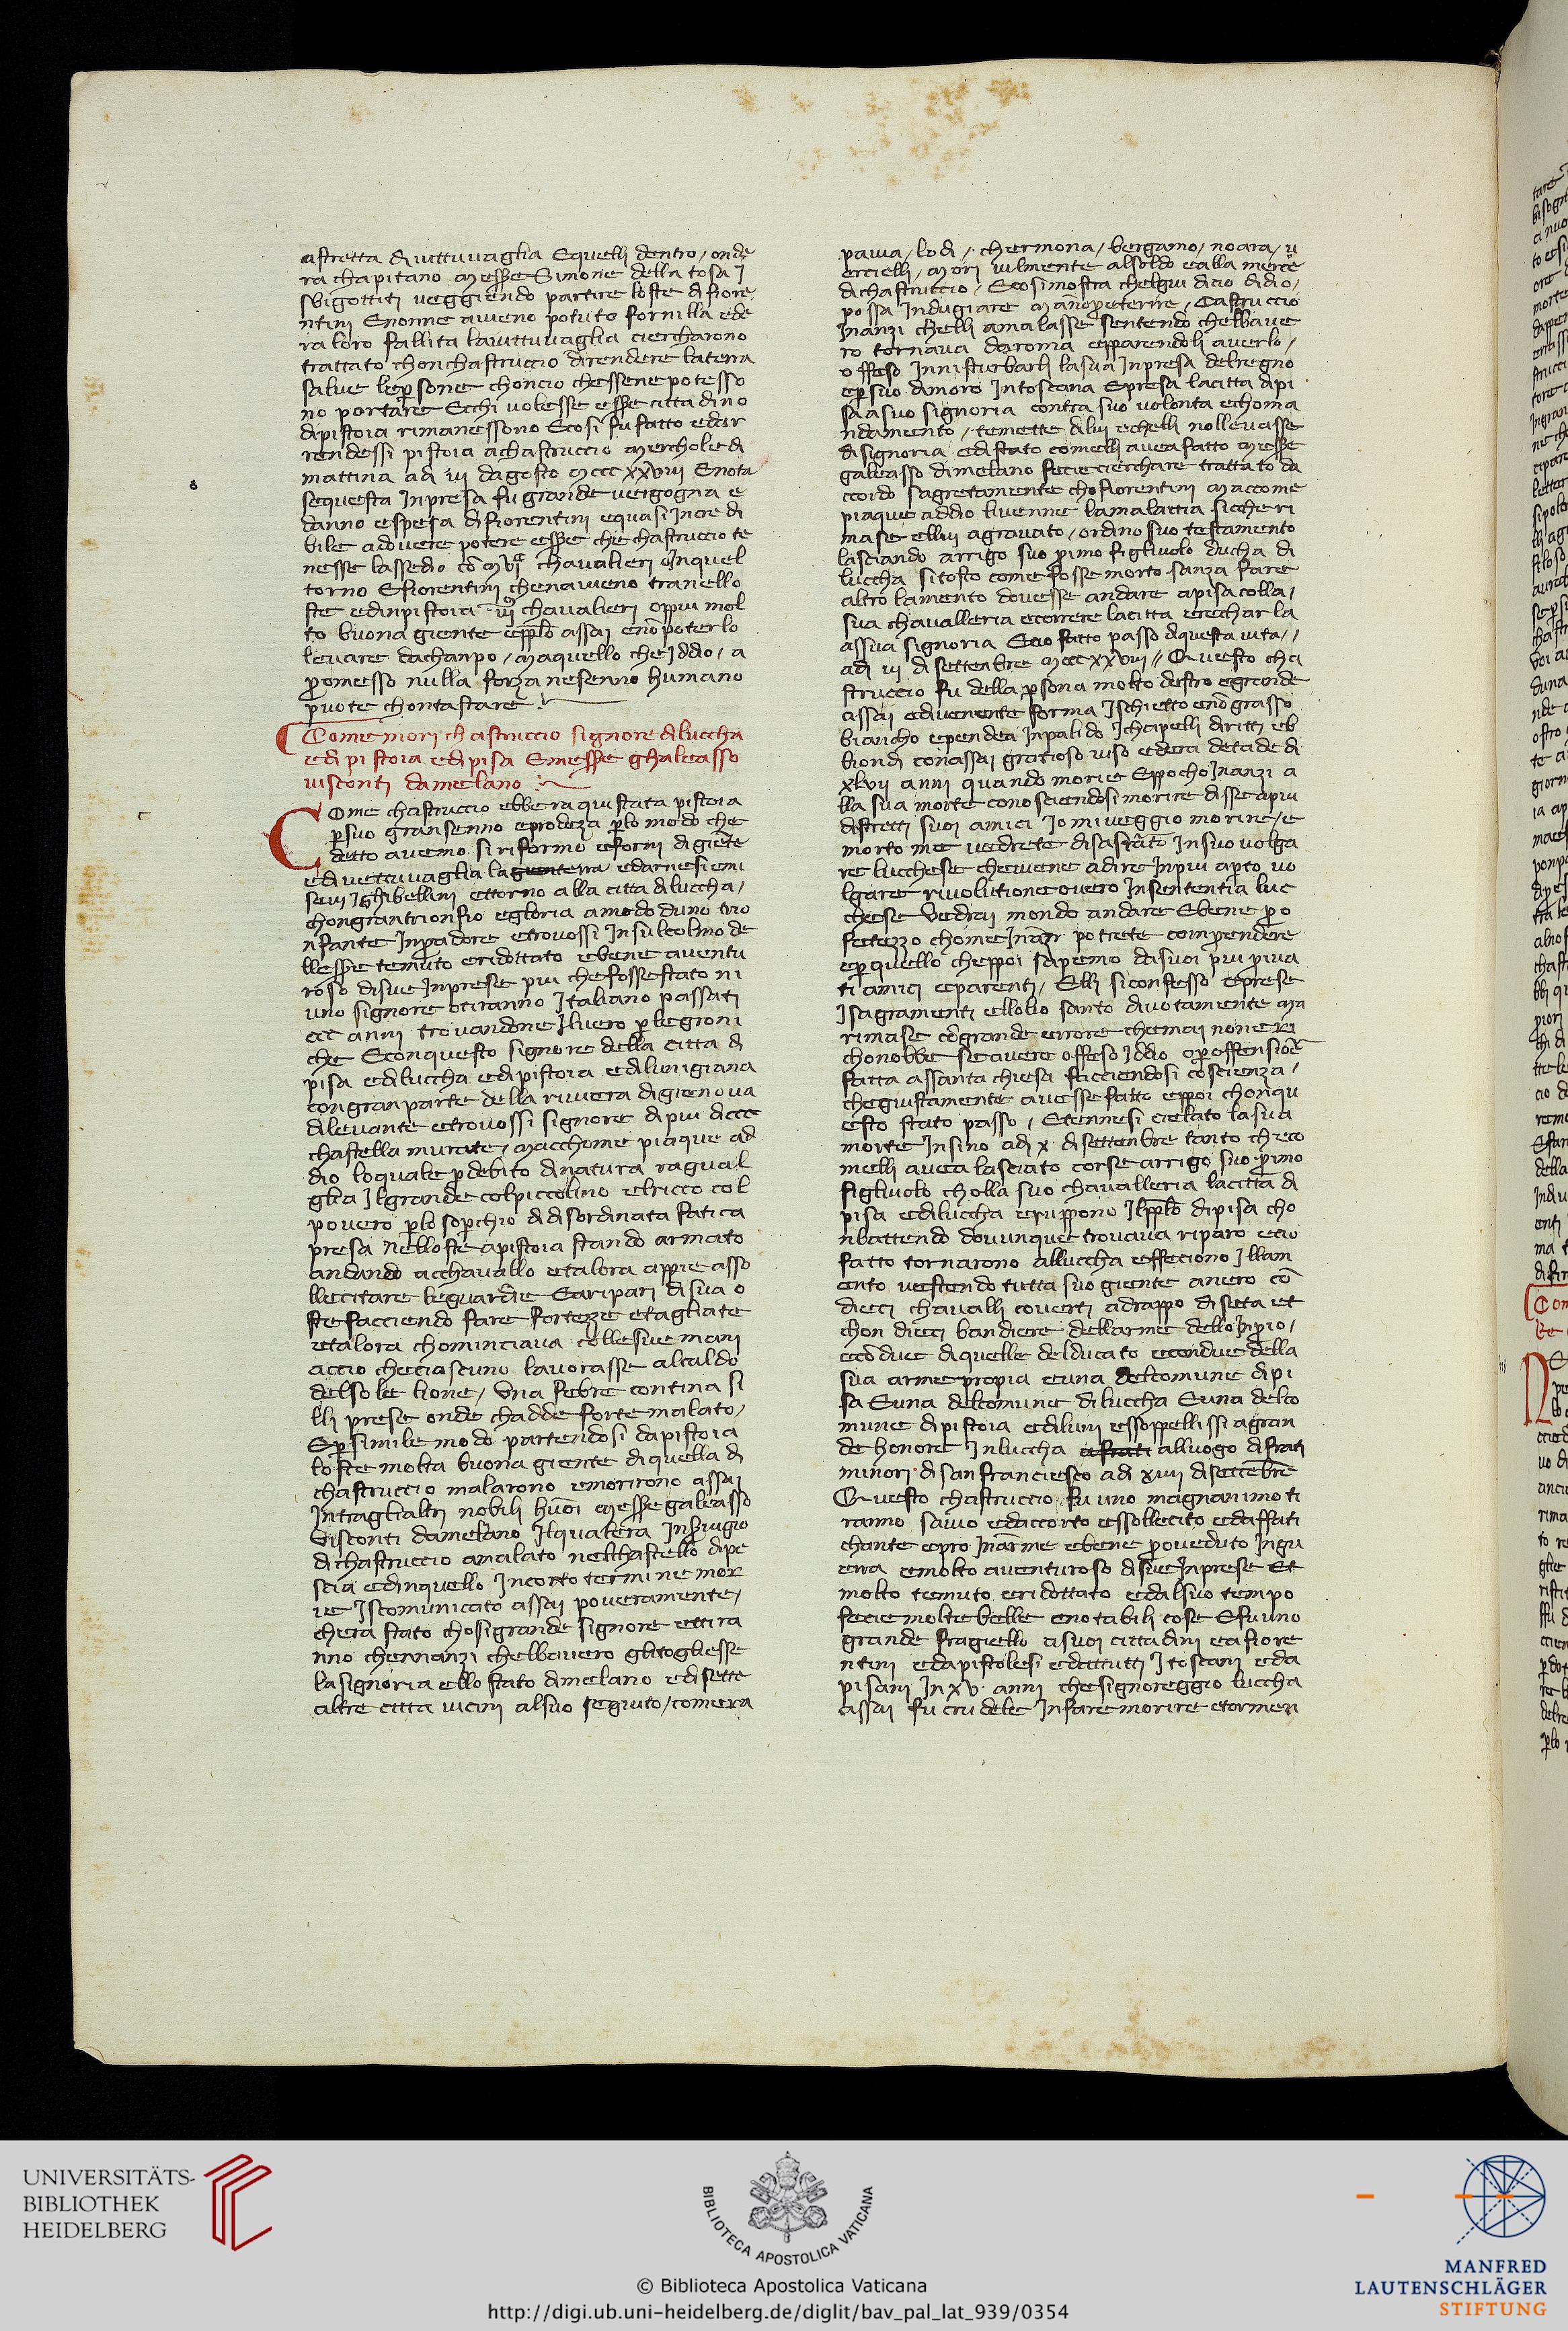 astretta di vittuvaglia Equelli dentro / onde
ra chapitano messere Simone della tosa j
sbigottiti veggiendo partire loste di fiore
ntini Enonne aveno potuto fornilla ede
ra loro fallita lavittuvaglia cierchorono
trattato chonchastruccio direndere laterra
salve leپsone choncio chessene potesso
no portare Ecchi volesse essere cittadino
dipistoia rimanessono Ecosi fu fatto edar
rendessi pistoia achastruccio merchole di
mattina adi iij dagosto mccc xxviij Enota
sequesta inpresa fu grande vergogna e
danno espesa difiorentini equasi incredi
bile adovere potere essere che chastruccio te
nesse lassedio chavalieri oinquel
torno Efiorentini chenaveno tranello
ste edinpistoia chavalieri oppiu mol
to buona giente epplo assai eno poterlo
levare dachanpo / maquello che iddio / a
promesso nulla forza nesenno humano
puote chontastare
Come mori chastruccio signore diluccha
edi pistoia edi pisa Emessere ghaleasso
visconti damelano
Come chastruccio ebbe raquistata pistoia
per suo gran senno eprodeza perlo modo che
detto avemo si riformo eforni di giente
edi vettuvaglia la edarnesi emi
sevi ighibellini ettorno alla citta diluccha /
chongrantrionfio egloria amodo duno trio
nfante inperadore etrovossi insulcolmo de
llessere temuto eridottato ebene aventu
roso disue inprese piu che fossestato ni
uno signore otiranno italiano passati
ccc anni trovandone ilvero perlegioni
che Econquesto signore della citta di
pisa ediluccha edipistoia edilunigiana
congranparte della riviera digienova
dilevante etrovossi signore dipiu diccc
chastella murate / macchome piaque ad
dio loquale perdebito dinatura raguagl
glia ilgrande colpiccolino elricco col
povero perlo soperchio didisordinata fatica
presa nelloste apistoia stando armato
andando acchavallo etalora appie asso
llecitare leguardie Earipari disua o
ste facciendo fare fortezze etagliate
etalora chominciava collesue mani
accio checiascuno lavorasse alcaldo
delsole lione / Una febre contina si
lli prese onde chadde forte malato /
Epersimile modo partendosi dapistoia
loste molta buona giente diquella di
chastruccio malarono emorirono assai
intraglialtri nobili huoi messere galeasso
Visconti damelano ilquale era inservigio
dichastruccio amalato nelchastello dipe
scia edinquello incorto termine mor
ie iscomunicato assai poveramente /
chera stato chosigrande signore ettira
nno chennanzi chelbavero glitogliesse
lasignoria ello stato dimelano edisette
altre citta vicini alsuo seguito / comera
pavia / lodi / chermona / bergamo / noara / v
ercielli / mori vilmente alsoldo ealla merce
dichastruccio / Ecosimostra chelgiu dicio didio /
possa indugiare mano peterire / Castruccio
inanzi chelli amalasse sentendo chelbave
ro tornava daroma epparendoli averlo /
offeso innisturbarli lasua inpresa delregno
epersuo dimoro intoscana Epresa lacitta dipi
sa asuo signoria contra suo volonta echoma
ndamento / temette dilui echelli nollevasse
disignoria edistato comelli avea fatto messere
galeasso dimelano fecie cierchare trattato da
ccordo sagretamente cho fiorentini maccome
piaque addio livenne lamalattia sicche ri
mase ellui agravato / ordino suo testamento
lasciando arrigo suo primo figlivolo ducha di
luccha sitosto come fosse morto sanza fare
altro lamento dovesse andare apisa colla /
sua chavalleria ecorrere lacitta erechar la
assua signoria Ecio fatto passo diquesta vita / /
adi iij disettenbre mccc xxviij // Questo cha
struccio fu della persona molto destro egrande
assai edivenente forma ischietto eno grasso
biancho ependea inpalido ichapelli diritti eb
biondi conassai gratioso viso edera detade di
xlvij anni quando morie Eppocho inanzi a
lla sua morte conosciendosi morire disse apiu
distretti suoi amici io miveggio morire / e
morto me vedrete disasroccato insuo volga
re lucchese cheviene adire inpiu apto vo
lgare rivolutione overo insententia luc
chese vedrai mondo andare Ebene pro
fetezzo chome inanzi potrete comprendere
eperquello cheppoi sapemo dasuoi piu priva
ti amici eparenti / Elli si confesso eprese
isagramenti ellolio santo divotamente ma
rimase congrande errore che mai none ri
chonobbe seavere offeso iddio operoffensione
fatta assanta chiesa facciendosi coscienza /
chegiustamente avesse fatto eppoi chonqu
esto stato passo / Etennesi cielato lasua
morte insino adi x disettenbre tanto checo
melli avea lasciato corse arrigo suo primo
figlivolo cholla suo chavalleria lacitta di
pisa ediluccha eruppono ilpplo dipisa cho
nbattendo dovunque trovava riparo ecio
fatto tornarono alluccha effeciono illam
ento vestendo tutta suo giente anero con
dieci chavalli coverti adrappo diseta et
chon dieci bandiere dellarme dello inprio /
econdue diquelle delducato econdue della
sua arme propia euna delcomune dipi
sa Euna delcomune diluccha Euna delco
mune dipistoia ediluni essoppellissi agran
de honore inluccha alluogo difrati
minori disan franciesco adi xiiij disettenbre
Questo chastruccio fu uno magnanimo ti
ranno savio edaccorto essollecito edaffati
chante epro inarme ebene proveduto ingu
erra emolto aventuroso disue inprese Et
molto temuto eridottato edalsuo tempo
fecie molte belle enotabili cose Efu uno
grande fragiello asuoi cittadini eafiore
ntini edapistolesi edattutti itoscani eda
pisani in xv. anni chesignoreggio luccha
assai fu crudele infare morire etormen
UNIVERSITÄTS-
BIBLIOTHEK
HEIDELBERG
BIBLIOTECA APOSTOLICA VATICANA
MANFRED
LAUTENSCHLÄGER
STIFTUNG
© Biblioteca Apostolica Vaticana
http://digi.ub.uni-heidelberg.de/diglit/bav_pal_lat_939/0354